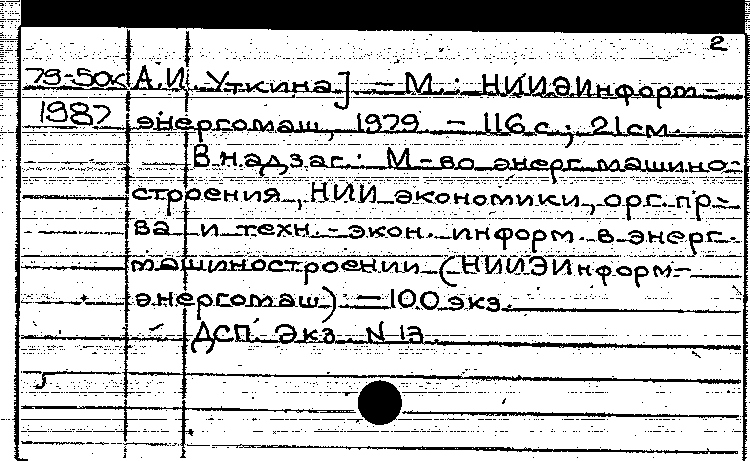 2
79-50к А.И. Уткина] — М.: НИИЭИнформ-
1987 энергомаш, 1979. — 116 с.; 21 см.
В надзаг.: М-во энерг. машино-
строения, НИИ экономики, орг. пр-
ва и техн.-экон. информ. в энерг.
машиностроении (НИИЭИнформ-
энергомаш). — 100 экз.
ДСП. Экз. N 13